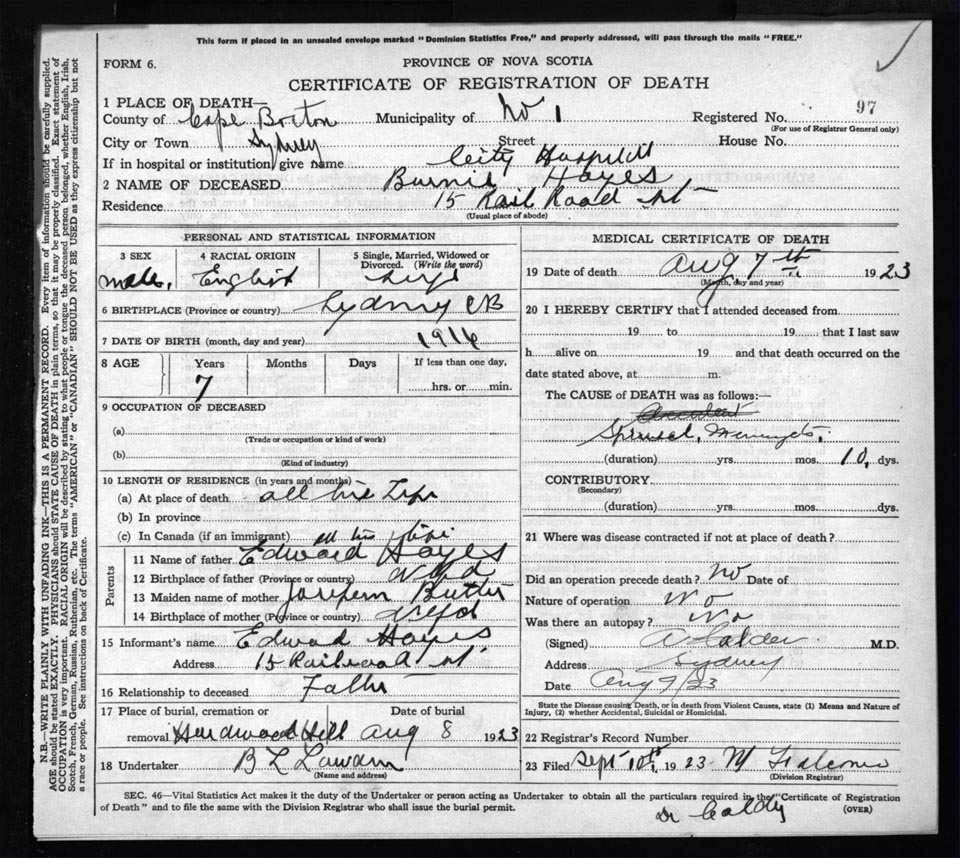 This form if placed in an unsealed envelope marked "Dominion Statistics Free," and properly addressed, will pass through the mails "FREE."
FORM 6.
PROVINCE OF NOVA SCOTIA
CERTIFICATE OF REGISTRATION OF DEATH
97
1 PLACE OF DEATH—
County of Cape Breton Municipality of No 1 Registered No.
(For use of Registrar General only)
City or Town Sydney Street House No.
If in hospital or institution, give name City Hospital
2 NAME OF DECEASED Hayes
Residence 15 Rail Road St
(Usual place of abode)
PERSONAL AND STATISTICAL INFORMATION
3 SEX 4 RACIAL ORIGIN 5 Single, Married, Widowed or Divorced. (Write the word)
male, English
6 BIRTHPLACE (Province or country) Sydney CB
7 DATE OF BIRTH (month, day and year) 1916
8 AGE Years Months Days If less than one day,
7 hrs. or min.
9 OCCUPATION OF DECEASED
(a)
(Trade or occupation or kind of work)
(b)
(Kind of industry)
10 LENGTH OF RESIDENCE (in years and months)
(a) At place of death all his Life
(b) In province
(c) In Canada (if an immigrant) all his
Parents
11 Name of father Edward Hayes
12 Birthplace of father (Province or country) Nfld
13 Maiden name of mother
14 Birthplace of mother (Province or country)
15 Informant's name Edward Hayes
Address 15 Railroad St
16 Relationship to deceased Father
17 Place of burial, cremation or Date of burial
removal Hardwood Hill Aug 8 1923
18 Undertaker B L
(Name and address)
MEDICAL CERTIFICATE OF DEATH
19 Date of death Aug 7th 1923
(Month, day and year)
20 I HEREBY CERTIFY that I attended deceased from
19 to 19 that I last saw
h alive on 19 and that death occurred on the
date stated above, at m.
The CAUSE of DEATH was as follows:—
Spinal Meningitis,
(duration) yrs. mos. 10, dys.
CONTRIBUTORY
(Secondary)
(duration) yrs. mos. dys.
21 Where was disease contracted if not at place of death?
Did an operation precede death? No Date of
Nature of operation No
Was there an autopsy? No
(Signed) A Calder M.D.
Address Sydney
Date Aug 9/23
State the Disease causing Death, or in death from Violent Causes, state (1) Means and Nature of
Injury, (2) whether Accidental, Suicidal or Homicidal.
22 Registrar's Record Number
23 Filed Sept 10th, 1923
(Division Registrar)
SEC. 46—Vital Statistics Act makes it the duty of the Undertaker or person acting as Undertaker to obtain all the particulars required in the "Certificate of Registration
of Death" and to file the same with the Division Registrar who shall issue the burial permit.
(OVER)
Dr
N.B.—WRITE PLAINLY WITH UNFADING INK—THIS IS A PERMANENT RECORD. Every item of information should be carefully supplied.
AGE should be stated EXACTLY. PHYSICIANS should STATE CAUSE OF DEATH in plain terms, so that it may be properly classified. Exact statement of
OCCUPATION is very important. RACIAL ORIGIN will be described by stating to what people or tongue the deceased person belonged, whether English, Irish,
Scotch, French, German, Russian, Ruthenian, etc. The terms "AMERICAN" or "CANADIAN" SHOULD NOT BE USED as they express citizenship but not
a race or people. See instructions on back of Certificate.